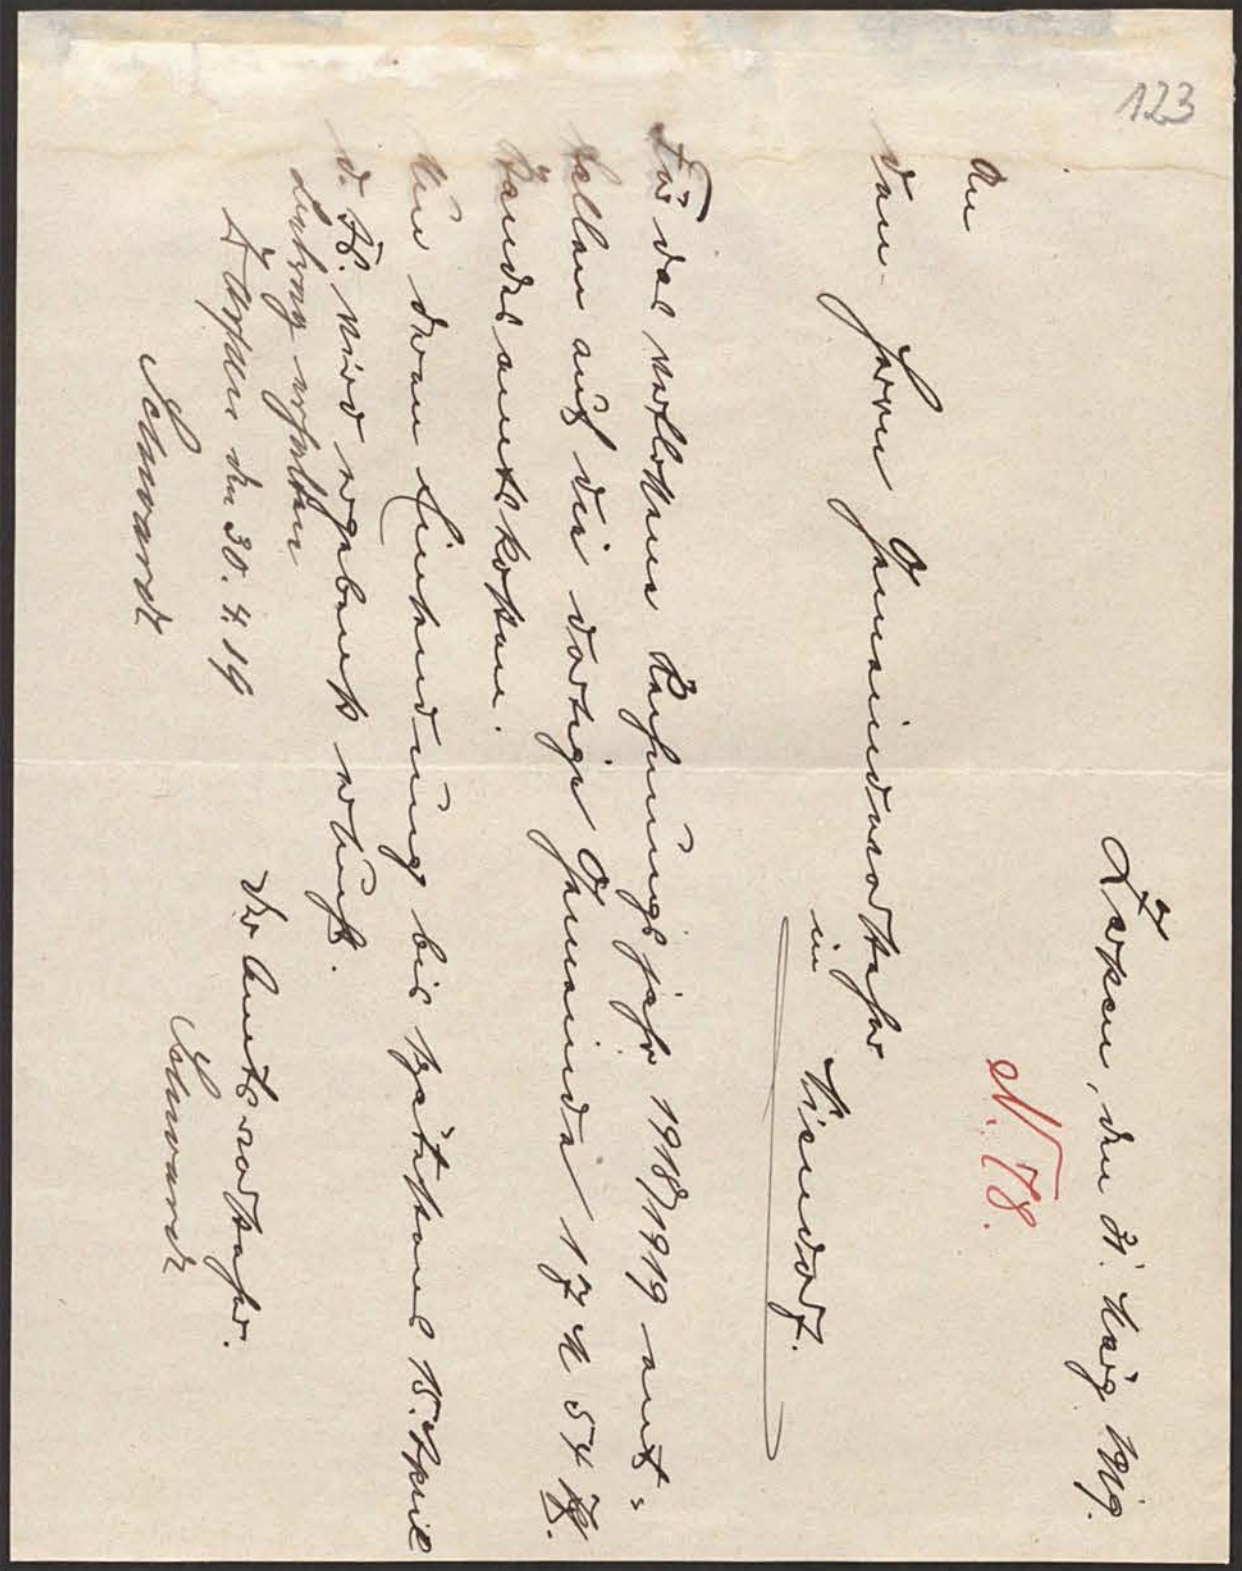 123
Zarpen, den 31. März 1919.
N. 78.
An
den Herrn Gemeindevorsteher
in Niendorf.
Für das verflossene Rechnungsjahr 1918/1919 ent=
fallen auf die dortige Gemeinde 17 M 54 Pf.
Standesamtskosten.
Um deren Einsendung bis spätestens 15. April
d. Js. wird ergebenst ersucht.
Der Amtsvorsteher.
Schwardt
Betrag erhalten
Zarpen den 30. 4. 19
Schwardt